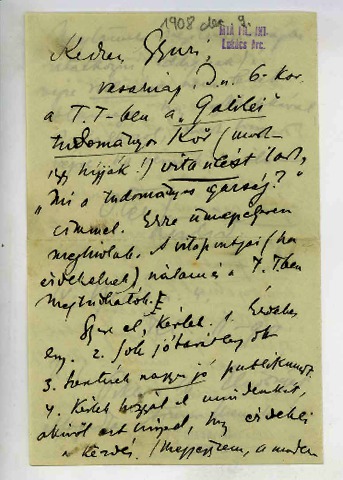 1908 dec 9.
MTA FIL. INT.
Lukács Arc.
Kedves Gyuri,
vasárnap D.u. 6-kor
a T.T-ben a „Galilei
tudományos Kör (most
így hívják!) vitaülést tart,
„Mi a tudományos igazság?"
címmel. Erre ünnepélyesen
meghívlak. A vitapontjai (ha
érdekelnek) nálam és a T.T.ben
megtudhatók.
Gyere el, kérlek. 1. Érdekes
lesz. 2. Sok jóbarátod
3. nagyon jó publikum
4. Kérlek hozzál el mindenkit,
akiről azt hiszed, hogy érdekli
a kérdés. (Megjegyzem, a modern